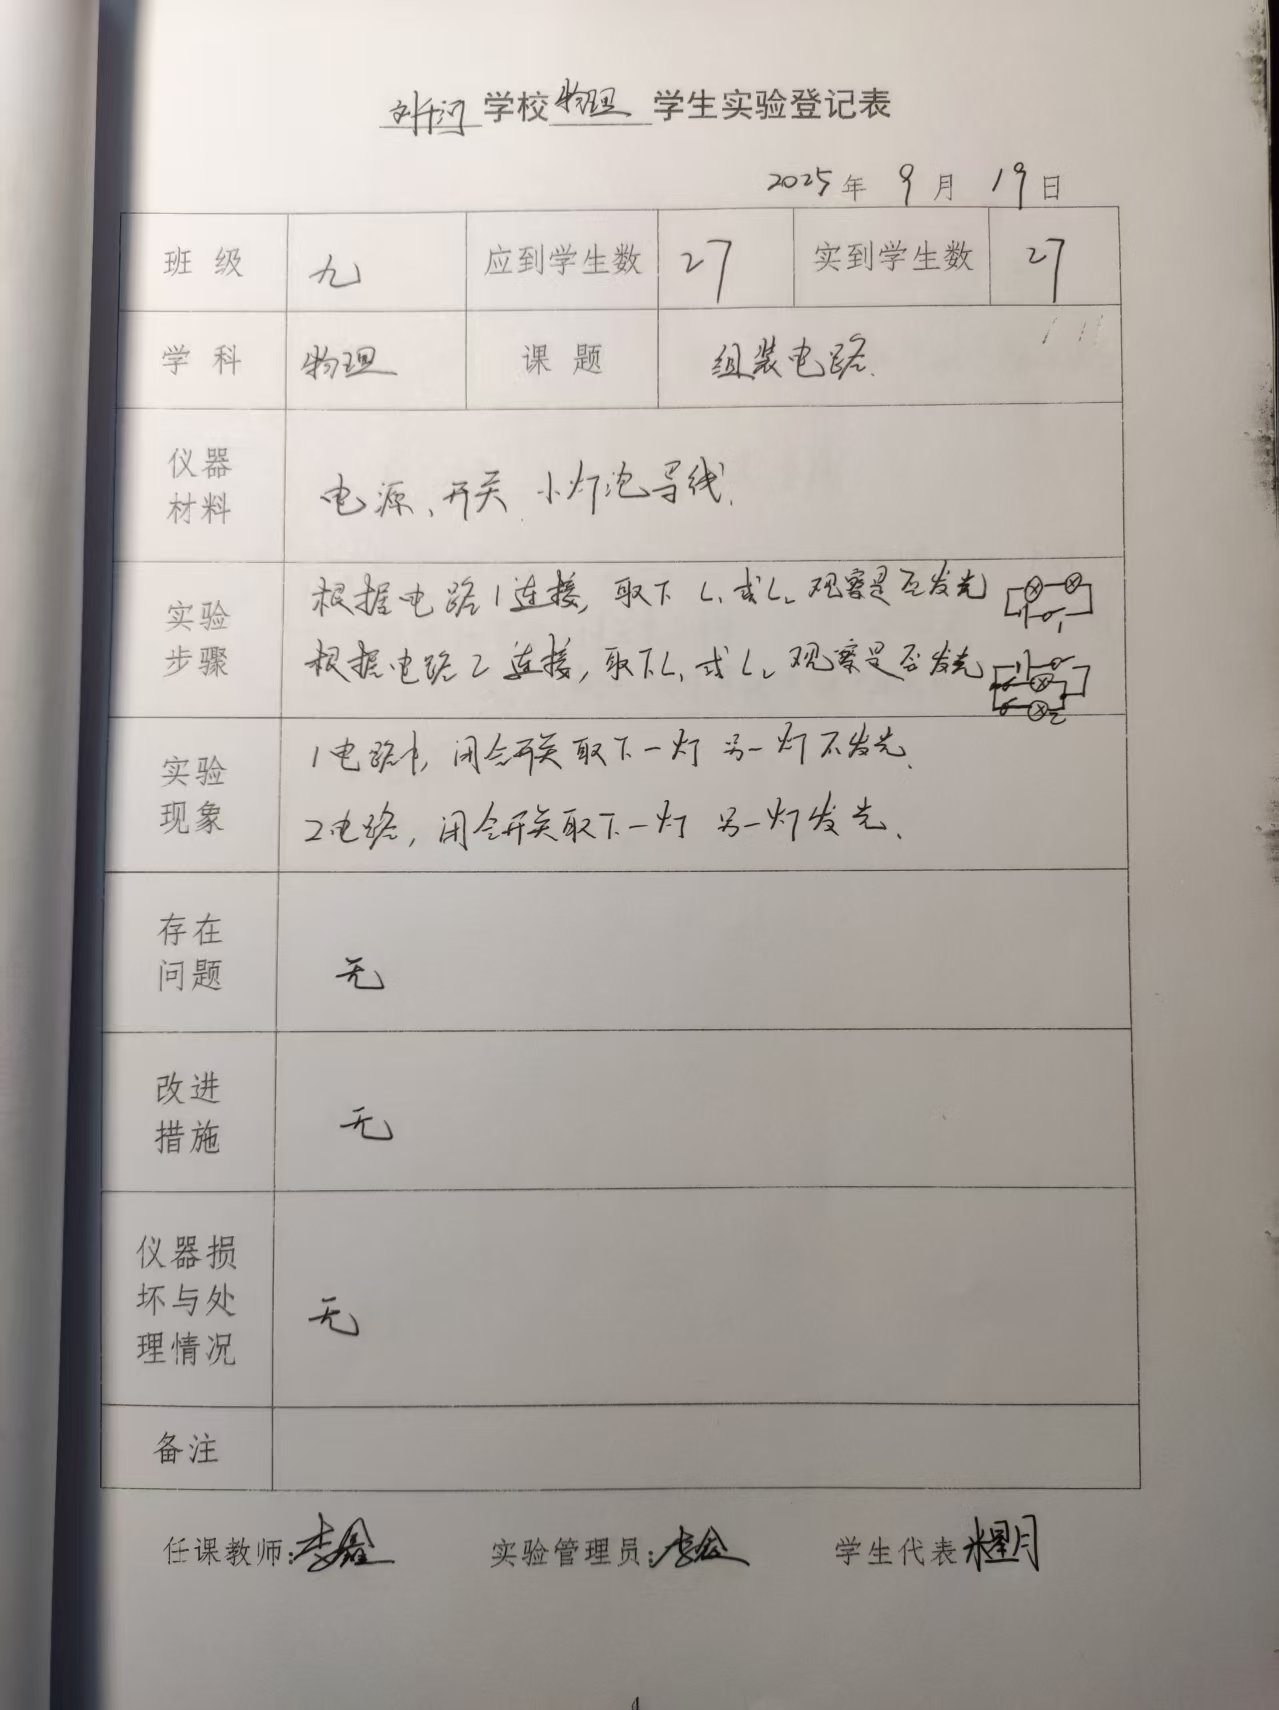 刘千河学校物理学生实验登记表
2025年9月19日
班级 九 应到学生数 27 实到学生数 27
学科 物理 课题 组装电路.
仪器
材料
电源、开关、小灯泡导线.
实验
步骤
根据电路1连接, 取下L1或L2观察是否发光
1
根据电路2连接, 取下L1或L2观察是否发光
2
实验
现象
1电路中, 闭合开关取下一灯 另一灯不发光.
2电路, 闭合开关取下一灯 另一灯发光.
存在
问题
无
改进
措施
无
仪器损
坏与处
理情况
无
备注
任课教师: 实验管理员: 学生代表
4